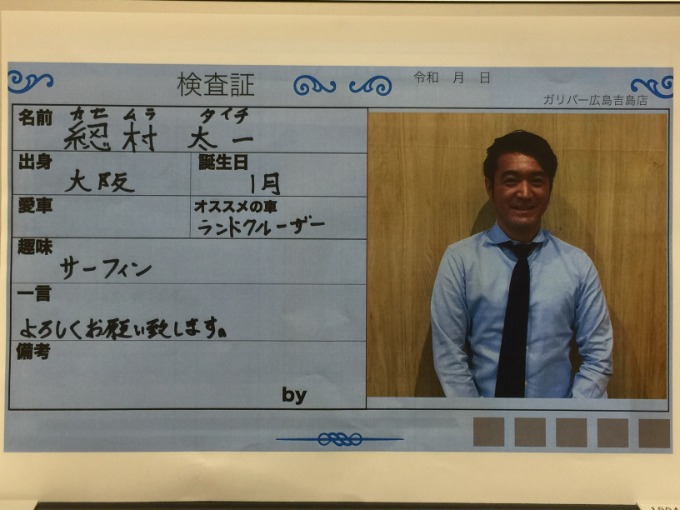 検査証
令和 月 日
ガリバー広島吉島店
名前
カセ ムラ タイチ
綛村 太一
出身
大阪
誕生日
1月
愛車
オススメの車
ランドクルーザー
趣味
サーフィン
一言
よろしくお願い致します。
備考
by